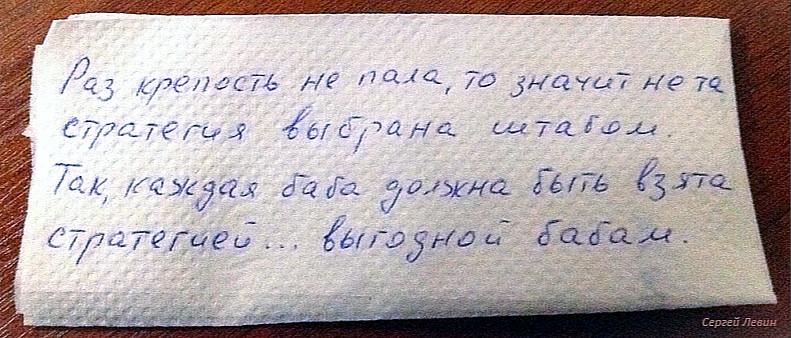 Раз крепость не пала, то значит не та
стратегия выбрана штабом.
Так, каждая баба должна быть взята
стратегией... выгодной бабам.
Сергей Левин